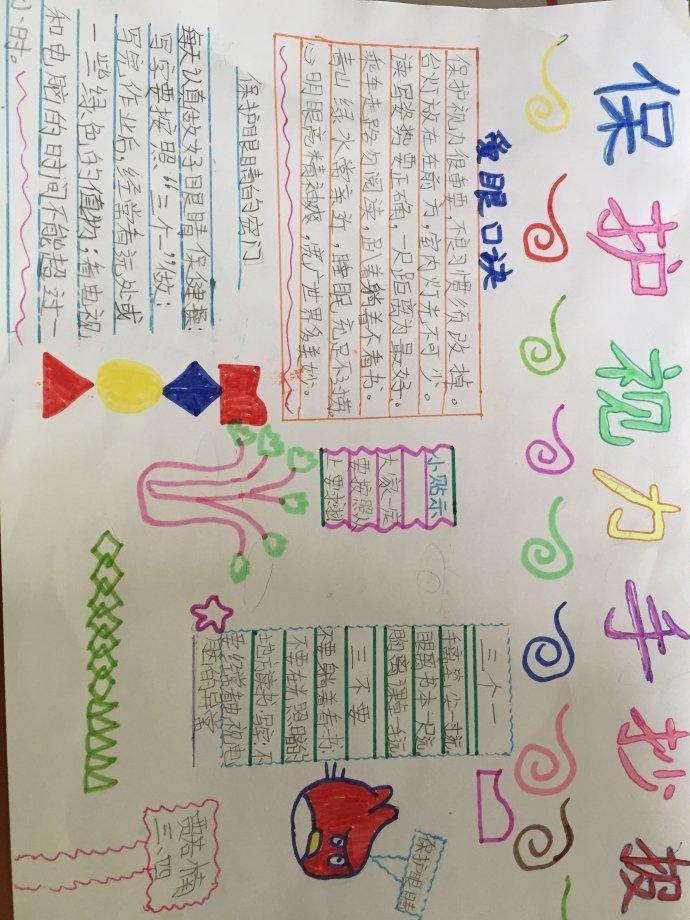 保护视力手抄报
爱眼口诀
保护视力很重要，不良习惯须改掉。
台灯放在左前方，室内灯光不可少。
读写姿势要正确，一尺距离为最好。
乘车走路勿阅读，趴着躺着不看书。
青山绿水常亲近，睡眠充足不疲劳。
心明眼亮精神爽，宽广世界多美妙。
保护眼睛的窍门
每天认真做好眼睛保健操；
写字要按照“三个一”做；
写完作业后，经常看远处或
一些绿色的植物；看电视
和电脑的时间不能超过一
小时。
小贴示
大家一定
要按照从
上要求做
三个一
眼离书本一尺远
三不要
不要躺着看书；
不要在光照暗的
地方读书写字；不
要经常看电视电
保护眼睛
三、四